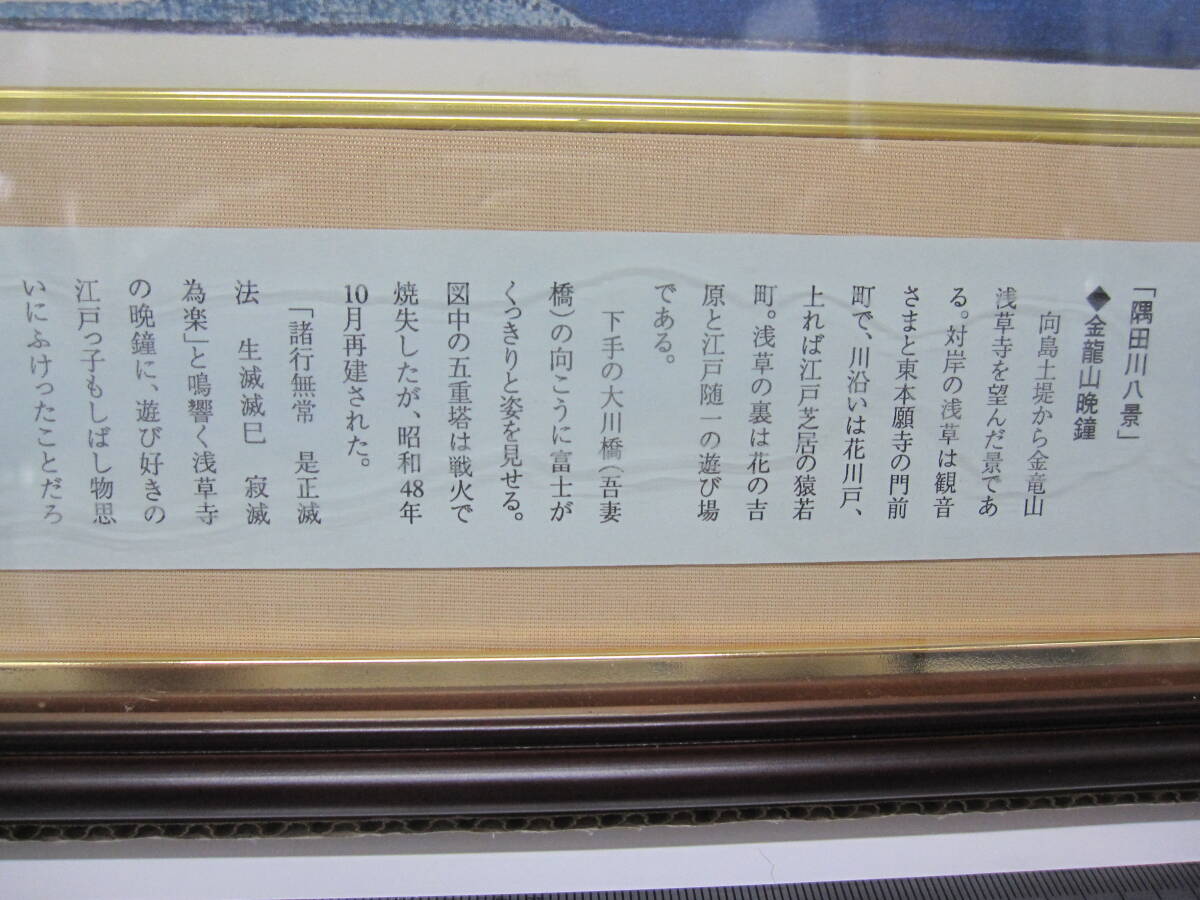 「隅田川八景」
◆金龍山晩鐘
向島土堤から金竜山
浅草寺を望んだ景であ
る。対岸の浅草は観音
さまと東本願寺の門前
町で、川沿いは花川戸、
上れば江戸芝居の猿若
町。浅草の裏は花の吉
原と江戸随一の遊び場
である。
下手の大川橋(吾妻
橋)の向こうに富士が
くっきりと姿を見せる。
図中の五重塔は戦火で
焼失したが、昭和48年
10月再建された。
「諸行無常 是正滅
法 生滅滅巳 寂滅
為楽」と鳴響く浅草寺
の晩鐘に、遊び好きの
江戸っ子もしばし物思
いにふけったことだろ